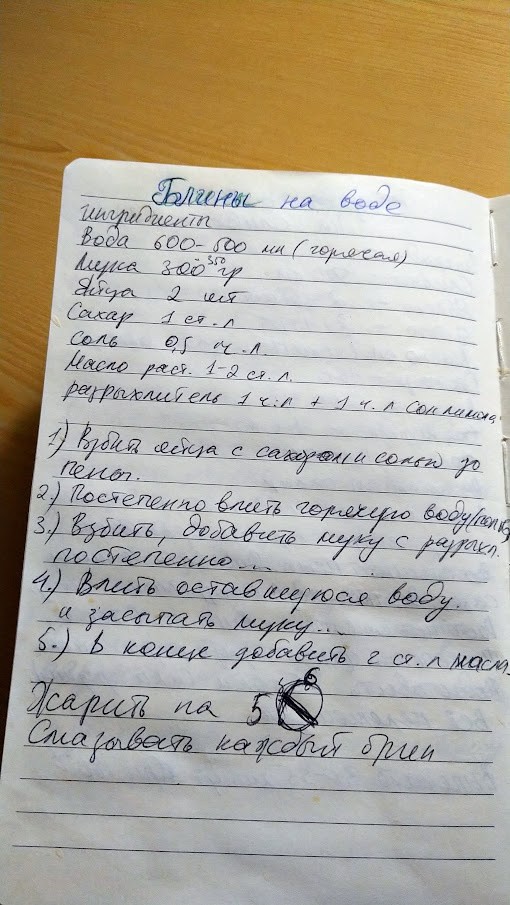 Блины на воде
ингридиенты
Вода 600-500 мл (горячая)
Мука 300-350 гр
Яйца 2 шт
Сахар 1 ст. л
Соль 0,5 ч. л.
Масло раст. 1-2 ст. л.
разрыхлитель 1 ч. л + 1 ч. л сок лимона
1.) Взбить яйца с сахаром и солью до
пены.
2.) Постепенно влить горячую воду/
3.) Взбить, добавить муку с разрыхл.
постепенно...
4.) Влить оставшуюся воду.
и засыпать муку...
5.) В конце добавить 2 ст. л масла.
6
Жарить на 5
Смазывать каждый блин